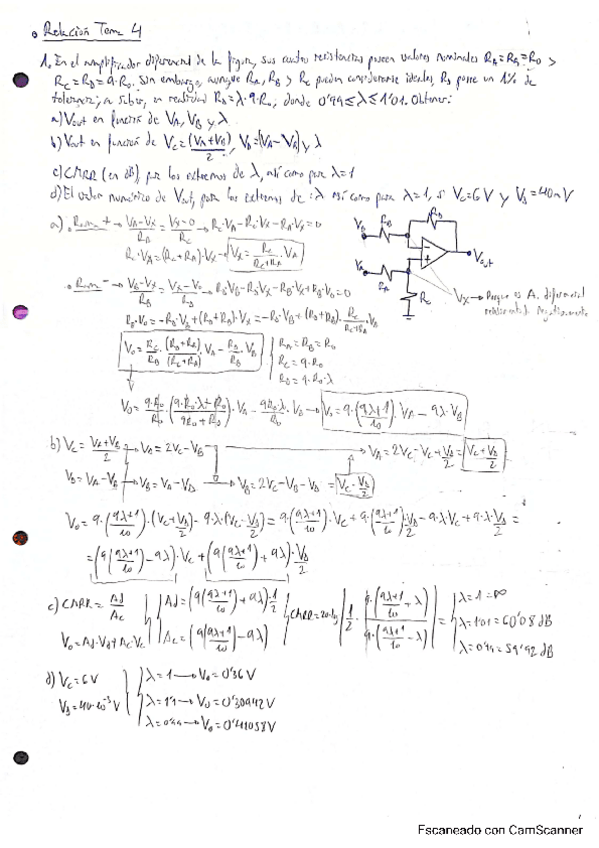 Relación Tema 4
1. En el amplificador diferencial de la figura, sus cuatro resistencias poseen valores nominales R_A=R_B=R_0 y
R_C=R_D=9·R_0. Sin embargo, aunque R_A, R_B y R_C pueden considerarse ideales, R_D posee un 1% de
tolerancia, a saber, en realidad R_D=λ·9·R_0, donde 0'99≤λ≤1'01. Obtener:
a) Vout en función de V_A, V_B y λ
b) Vout en función de V_C=(V_A+V_B)/2, V_D=(V_A-V_B) y λ
c) CMRR (en dB), para los extremos de λ, así como para λ=1
d) El valor numérico de Vout, para los extremos de λ así como para λ=1, si V_C=6V y V_D=40mV
a) Rama + → (V_A-V_X)/R_A = (V_X-0)/R_C → R_C·V_A-R_C·V_X-R_A·V_X=0
R_C·V_A=(R_C+R_A)·V_X → V_X = R_C/(R_C+R_A)·V_A
V_B R_B R_D
V_A R_A R_C Vout
V_X → Porque es A. diferencial
realimentado negativamente
Rama - → (V_B-V_X)/R_B = (V_X-V_0)/R_D → R_D·V_B-R_D·V_X-R_B·V_X+R_B·V_0=0
R_B·V_0=-R_D·V_B+(R_D+R_B)·V_X=-R_D·V_B+(R_D+R_B)·R_C/(R_C+R_A)·V_A
V_0=R_C/R_B·(R_D+R_B)/(R_C+R_A)·V_A-R_D/R_B·V_B
R_A=R_B=R_0
R_C=9·R_0
R_D=9·R_0·λ
V_0=9·R_0/R_0·(9·R_0·λ+R_0)/(9R_0+R_0)·V_A-9R_0·λ/R_0·V_B → V_0=9·((9λ+1)/10)·V_A-9λ·V_B
b) V_C=(V_A+V_B)/2 → V_A=2V_C-V_B → V_A=2V_C-V_C+V_D/2=V_C+V_D/2
V_D=V_A-V_B → V_B=V_A-V_D → V_B=2V_C-V_B-V_D=V_C-V_D/2
V_0=9·((9λ+1)/10)·(V_C+V_D/2)-9·λ·(V_C-V_D/2)=9·((9λ+1)/10)·V_C+9·((9λ+1)/10)·V_D/2-9·λ·V_C+9·λ·V_D/2=
=(9((9λ+1)/10)-9λ)·V_C+(9((9λ+1)/10)+9λ)·V_D/2
c) CMRR=Ad/Ac
V_0=Ad·Vd+Ac·Vc
Ad=(9((9λ+1)/10)+9λ)·1/2
Ac=(9((9λ+1)/10)-9λ)
CMRR=20·log|1/2·9·((9λ+1)/10+λ)/9·((9λ+1)/10-λ)|=
λ=1=∞
λ=1'01=60'08 dB
λ=0'99=59'92 dB
d) V_C=6V
V_D=40·10^-3 V
λ=1 → V_0=0'36V
λ=1'1 → V_0=0'30942V
λ=0'99 → V_0=0'41058V
Escaneado con CamScanner